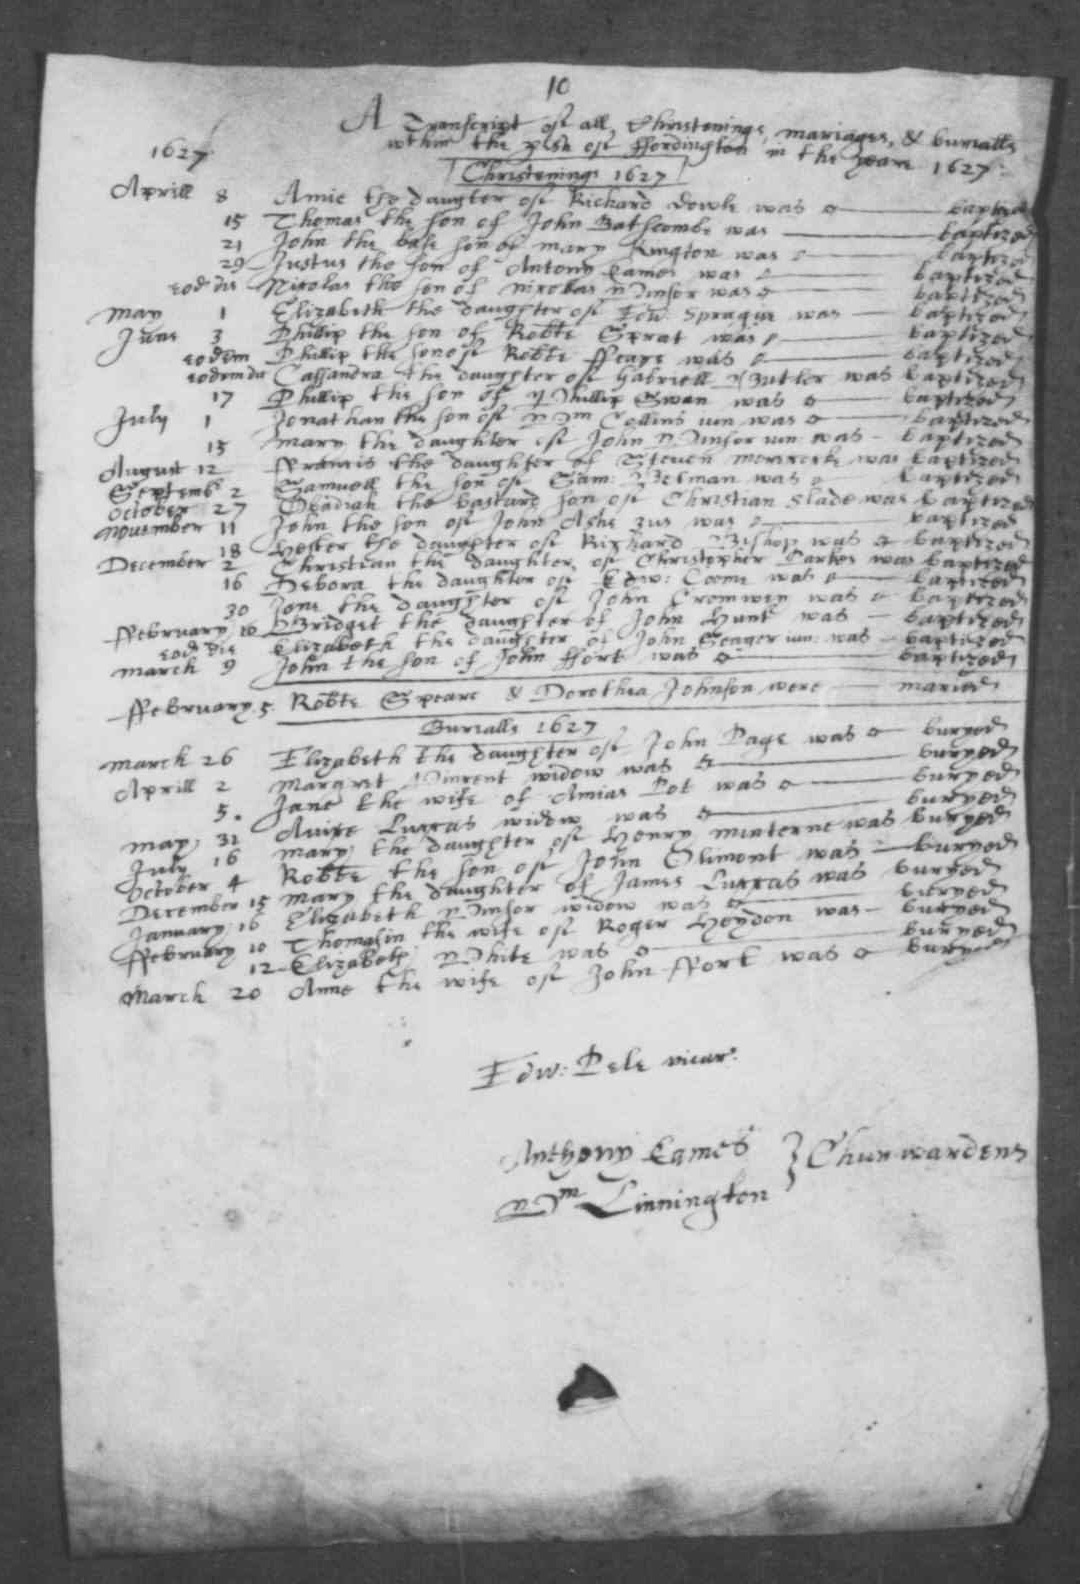 10
A Transcript of all Christenings, mariages, & burialls
wthin the pish of ffordington in the yeare 1627:
1627
Christenings 1627
Aprill 8 Amie the daugter of Rickard was baptized
15 Thomas the son of John Batscombe was baptized
21 John the base son of mary Kington was baptized
29 Justus the son of Antony Eames was baptized
eod die Nicolas the son of Nicolas Winsor was baptized
may 1 Elizabeth the daughter of Edw: Sprague was baptized
June 3 Phillip the son of Robte Sprat was baptized
eodem Phillip the son of Robte was baptized
eodem die Cassandra the daughter of Gabriell Butler was baptized
17 Phillip the son of Phillip Swan was baptized
July 1 Jonathan the son of Wm Collins iun was baptized
15 mary the daughter of John Winsor iun: was baptized
August 12 ffrancis the daughter of Steven was baptized
Septemb 2 Samuell the son of Sam: was baptized
October 27 Obadiah the bastard son of Christian Slade was baptized
november 11 John the son of John Ashe was baptized
18 Hester the daughter of Richard Bishop was baptized
December 2 Christian the daughter of Christopher Parker was baptized
16 Debora the daughter of Edw: Coome was baptized
30 Jone the daughter of John Cromwey was baptized
ffebruary 10 Bridget the daughter of John Hunt was baptized
eod die Elizabeth the daughter of John Seager iun: was baptized
march 9 John the son of John ffort was baptized
ffebruary 5 Robte Speare & Dorothea Johnson were maried
Burialls 1627
march 26 Elizabeth the daughter of John Page was buryed
Aprill 2 Margret Vincent widow was buryed
5. Jane the wife of Amias Pot was buryed
may 31 Avice Luccas widow was buryed
July 16 mary the daughter of Henry minterne was buryed
October 4 Robte the son of John Olimont was buryed
December 15 mary the daughter of James Luccas was buryed
January 16 Elizabeth Winsor widow was buryed
ffebruary 10 Thomasin the wife of Roger Heydon was buryed
12 Elizabeth White was buryed
March 20 Anne the wife of John ffort was buryed
Edw: Pele vicar:
Anthony Eames } Churwardens
Wm Linnington